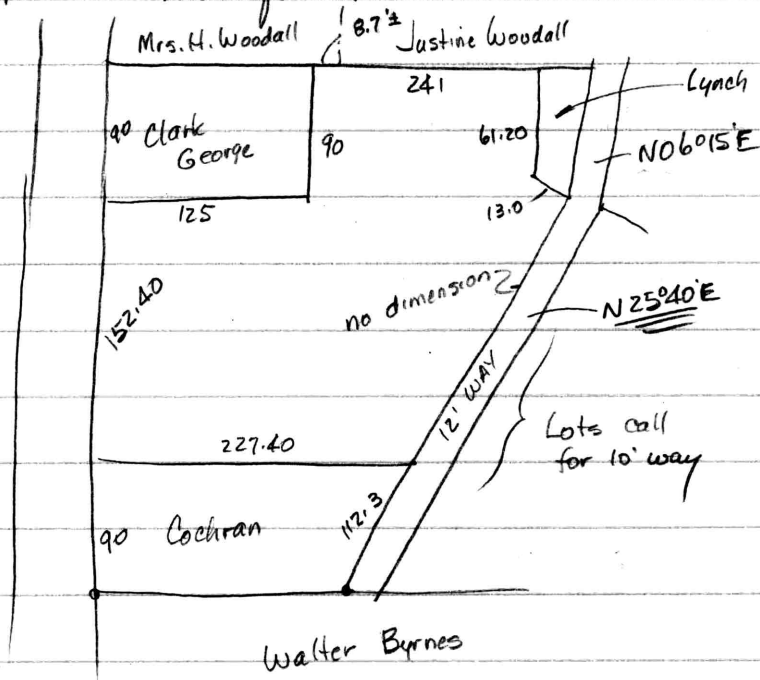 8.7'±
Mrs. H. Woodall
Justine Woodall
241
Lynch
90 Clark
George
90
61.20
N06°15'E
125
13.0
152.40
no dimension
N25°40'E
12' WAY
Lots call
for 10' way
227.40
112.3
90 Cochran
Walter Byrnes